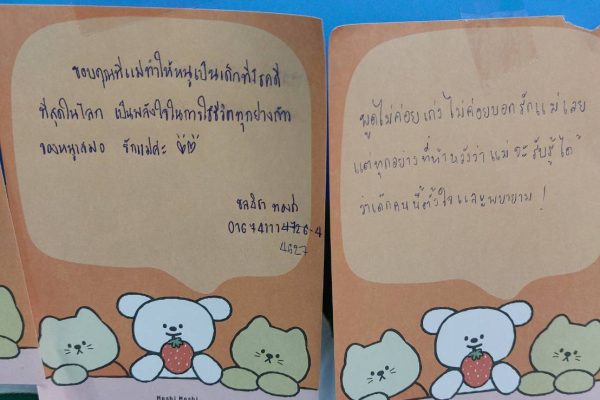 ขอบคุณที่แม่ทำให้หนูเป็นเด็กที่โชคดี
ที่สุดในโลก เป็นพลังใจในการใช้ชีวิตทุกย่างก้าว
ของหนูเสมอ รักแม่ค่ะ
4627
Moshi Moshi
พูดไม่ค่อยเก่ง ไม่ค่อยบอกรักแม่เลย
แต่ทุกอย่างที่ทำหวังว่าแม่จะรับรู้ได้
ว่าเด็กคนนี้ตั้งใจและพยายาม!